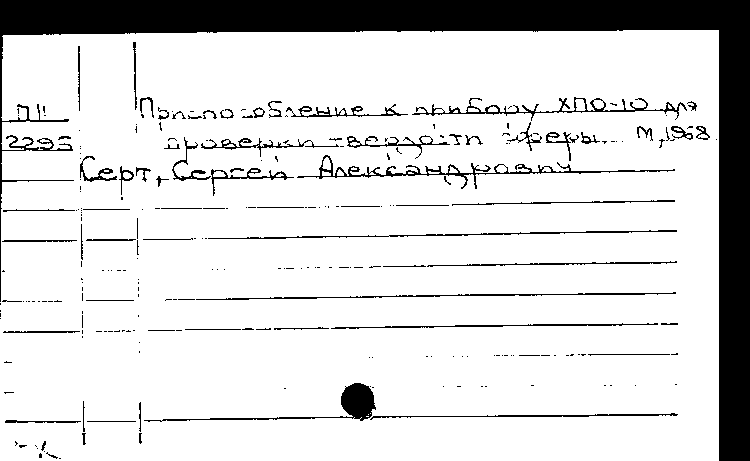 П11 Приспособление к прибору ХПО-10 для
2295 проверки твердости сферы. М, 1968
Серт, Сергей Александрович